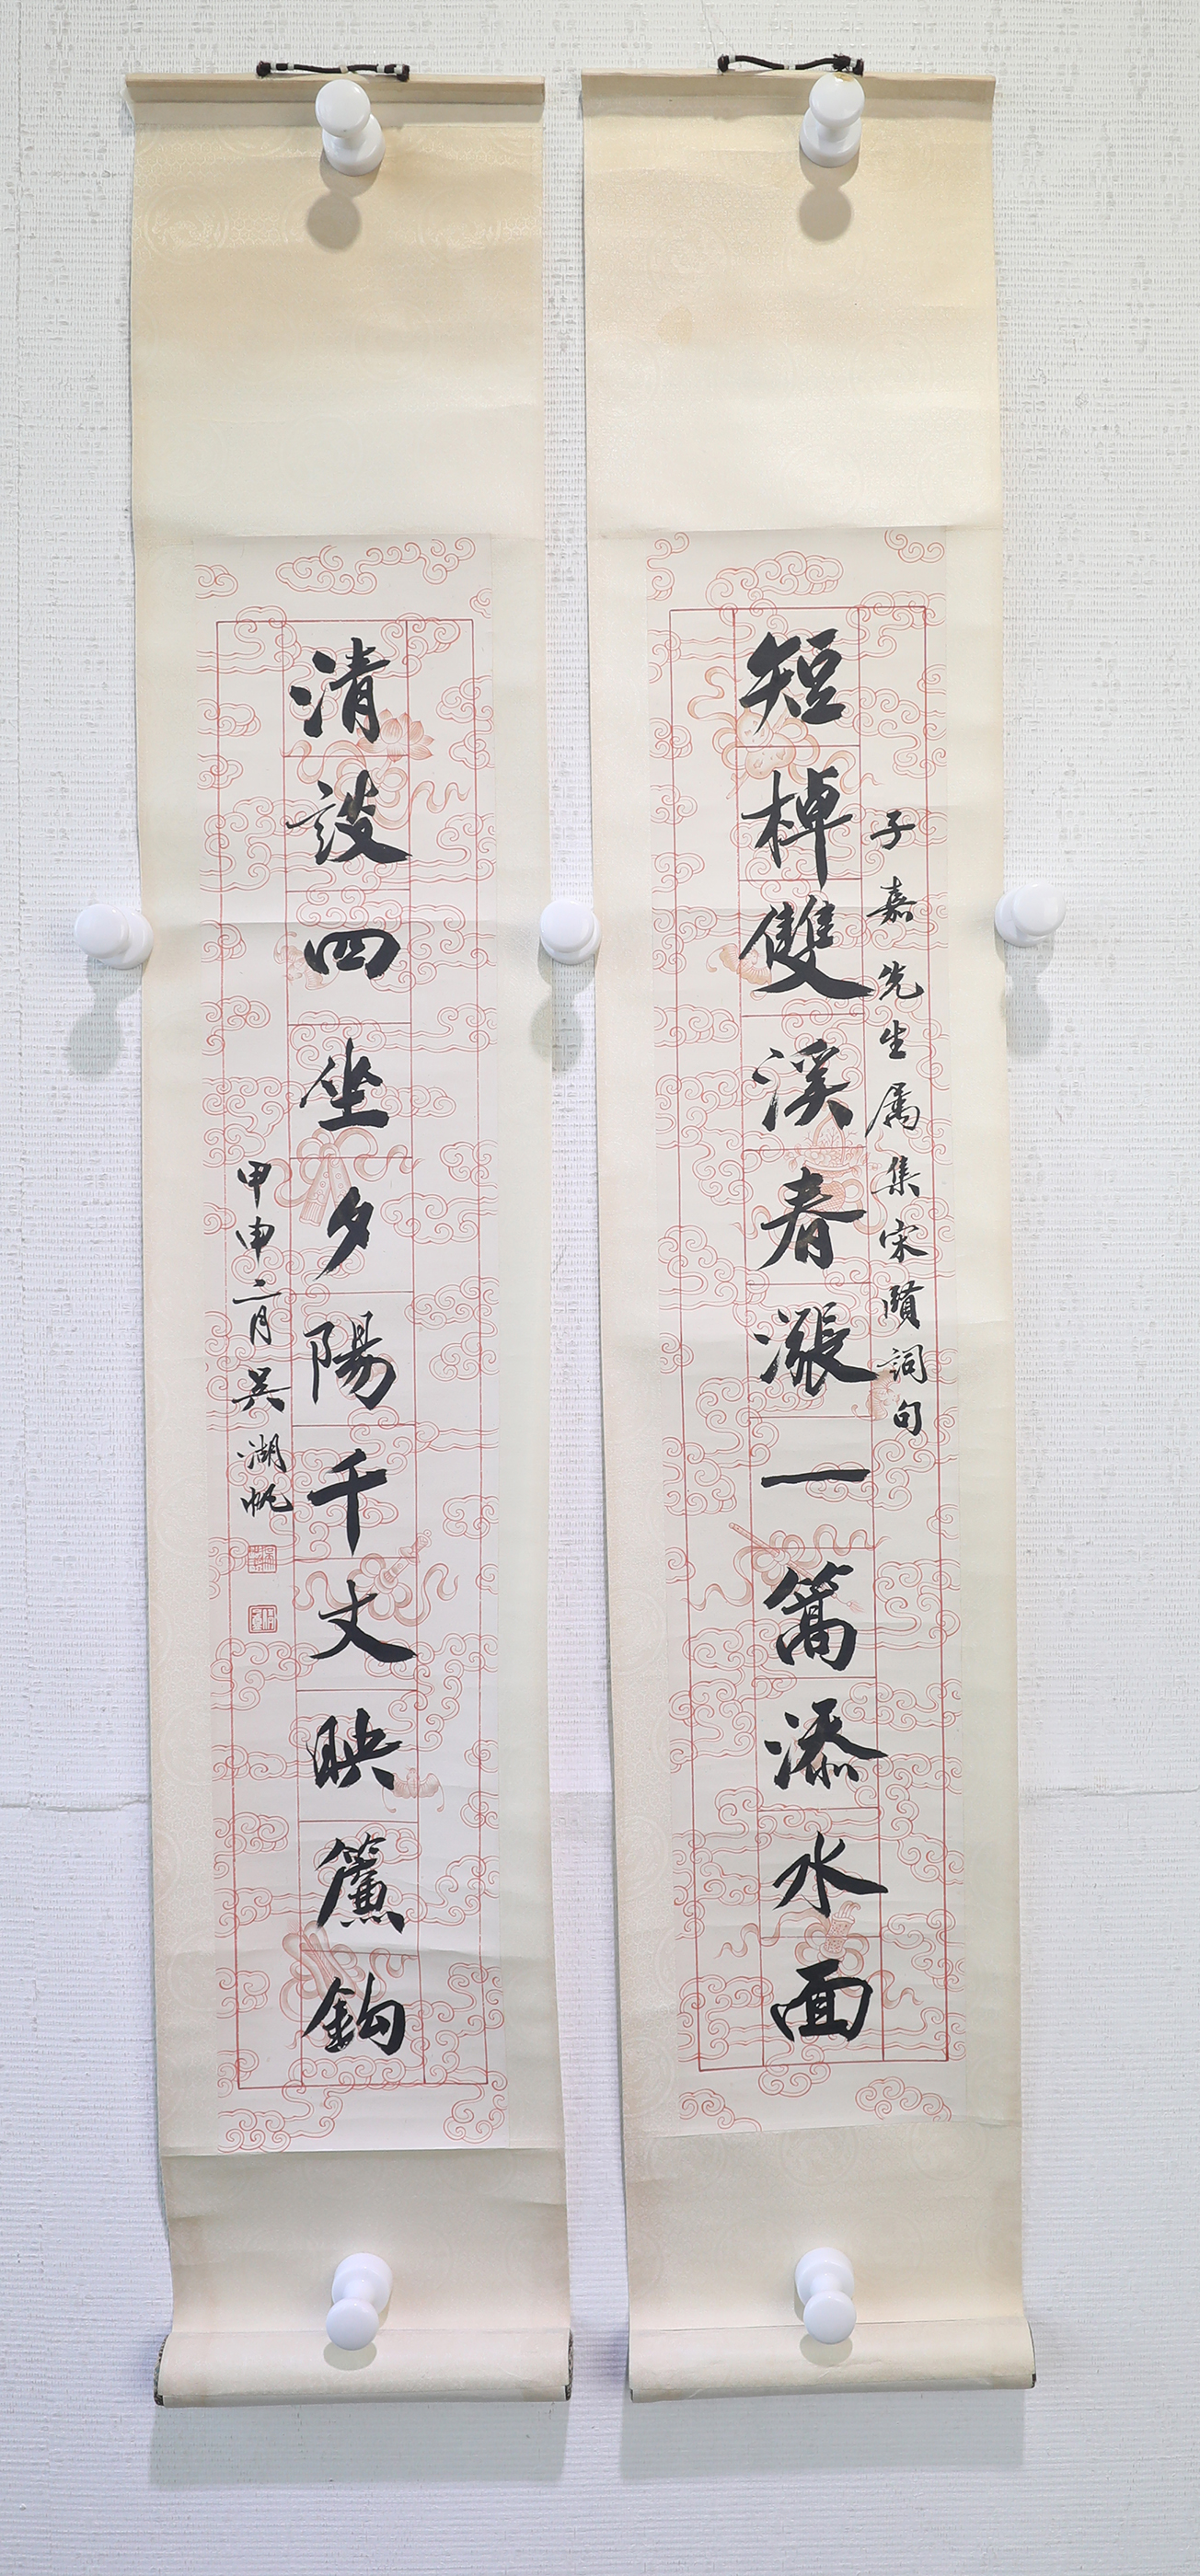 短棹雙溪春漲一篙添水面
子嘉先生属集宋賢詞句
清談四坐夕陽千丈映簾鈎
甲申二月吳湖帆